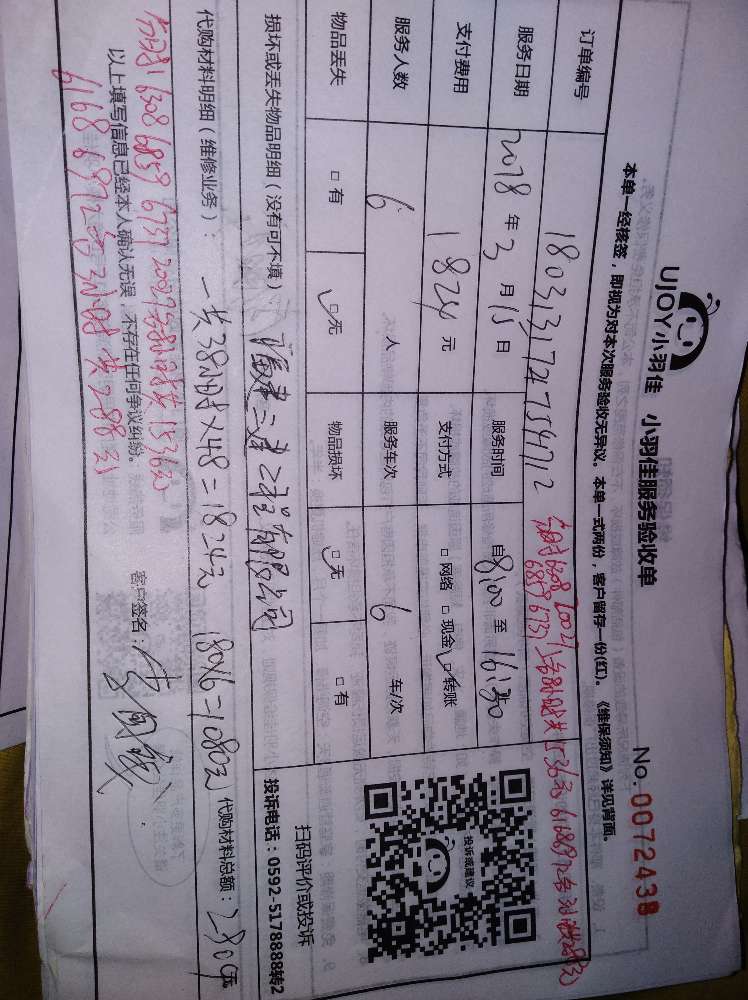 UJOY小羽佳 小羽佳服务验收单
No. 0072438
本单一经核签，即视为对本次服务验收无异议。本单一式两份，客户留存一份(红)。《维保须知》详见背面。
订单编号 18031317247154712
服务日期 2018 年 3 月 15 日 服务时间 自 8:00 至 16:30
支付费用 1824 元 支付方式 □ 网络 □ 现金 ☑ 转账
服务人数 6 人 服务车次 6 车/次
物品丢失 □ 有 ☑ 无 物品损坏 ☑ 无 □ 有
投诉或建议
扫码评价或投诉
投诉电话：0592-5178888转2
损坏或丢失物品明细（没有可不填） 福建二建工程有限公司
代购材料明细（维修业务）： 一共38小时×48=1824元 180×6=1080元 代购材料总额：2804元
6308 6859 6737 20029 8小时 共1536元
以上填写信息已经本人确认无误，不存在任何争议纠纷。 客户签名：
6168 6892 各3小时 共288元